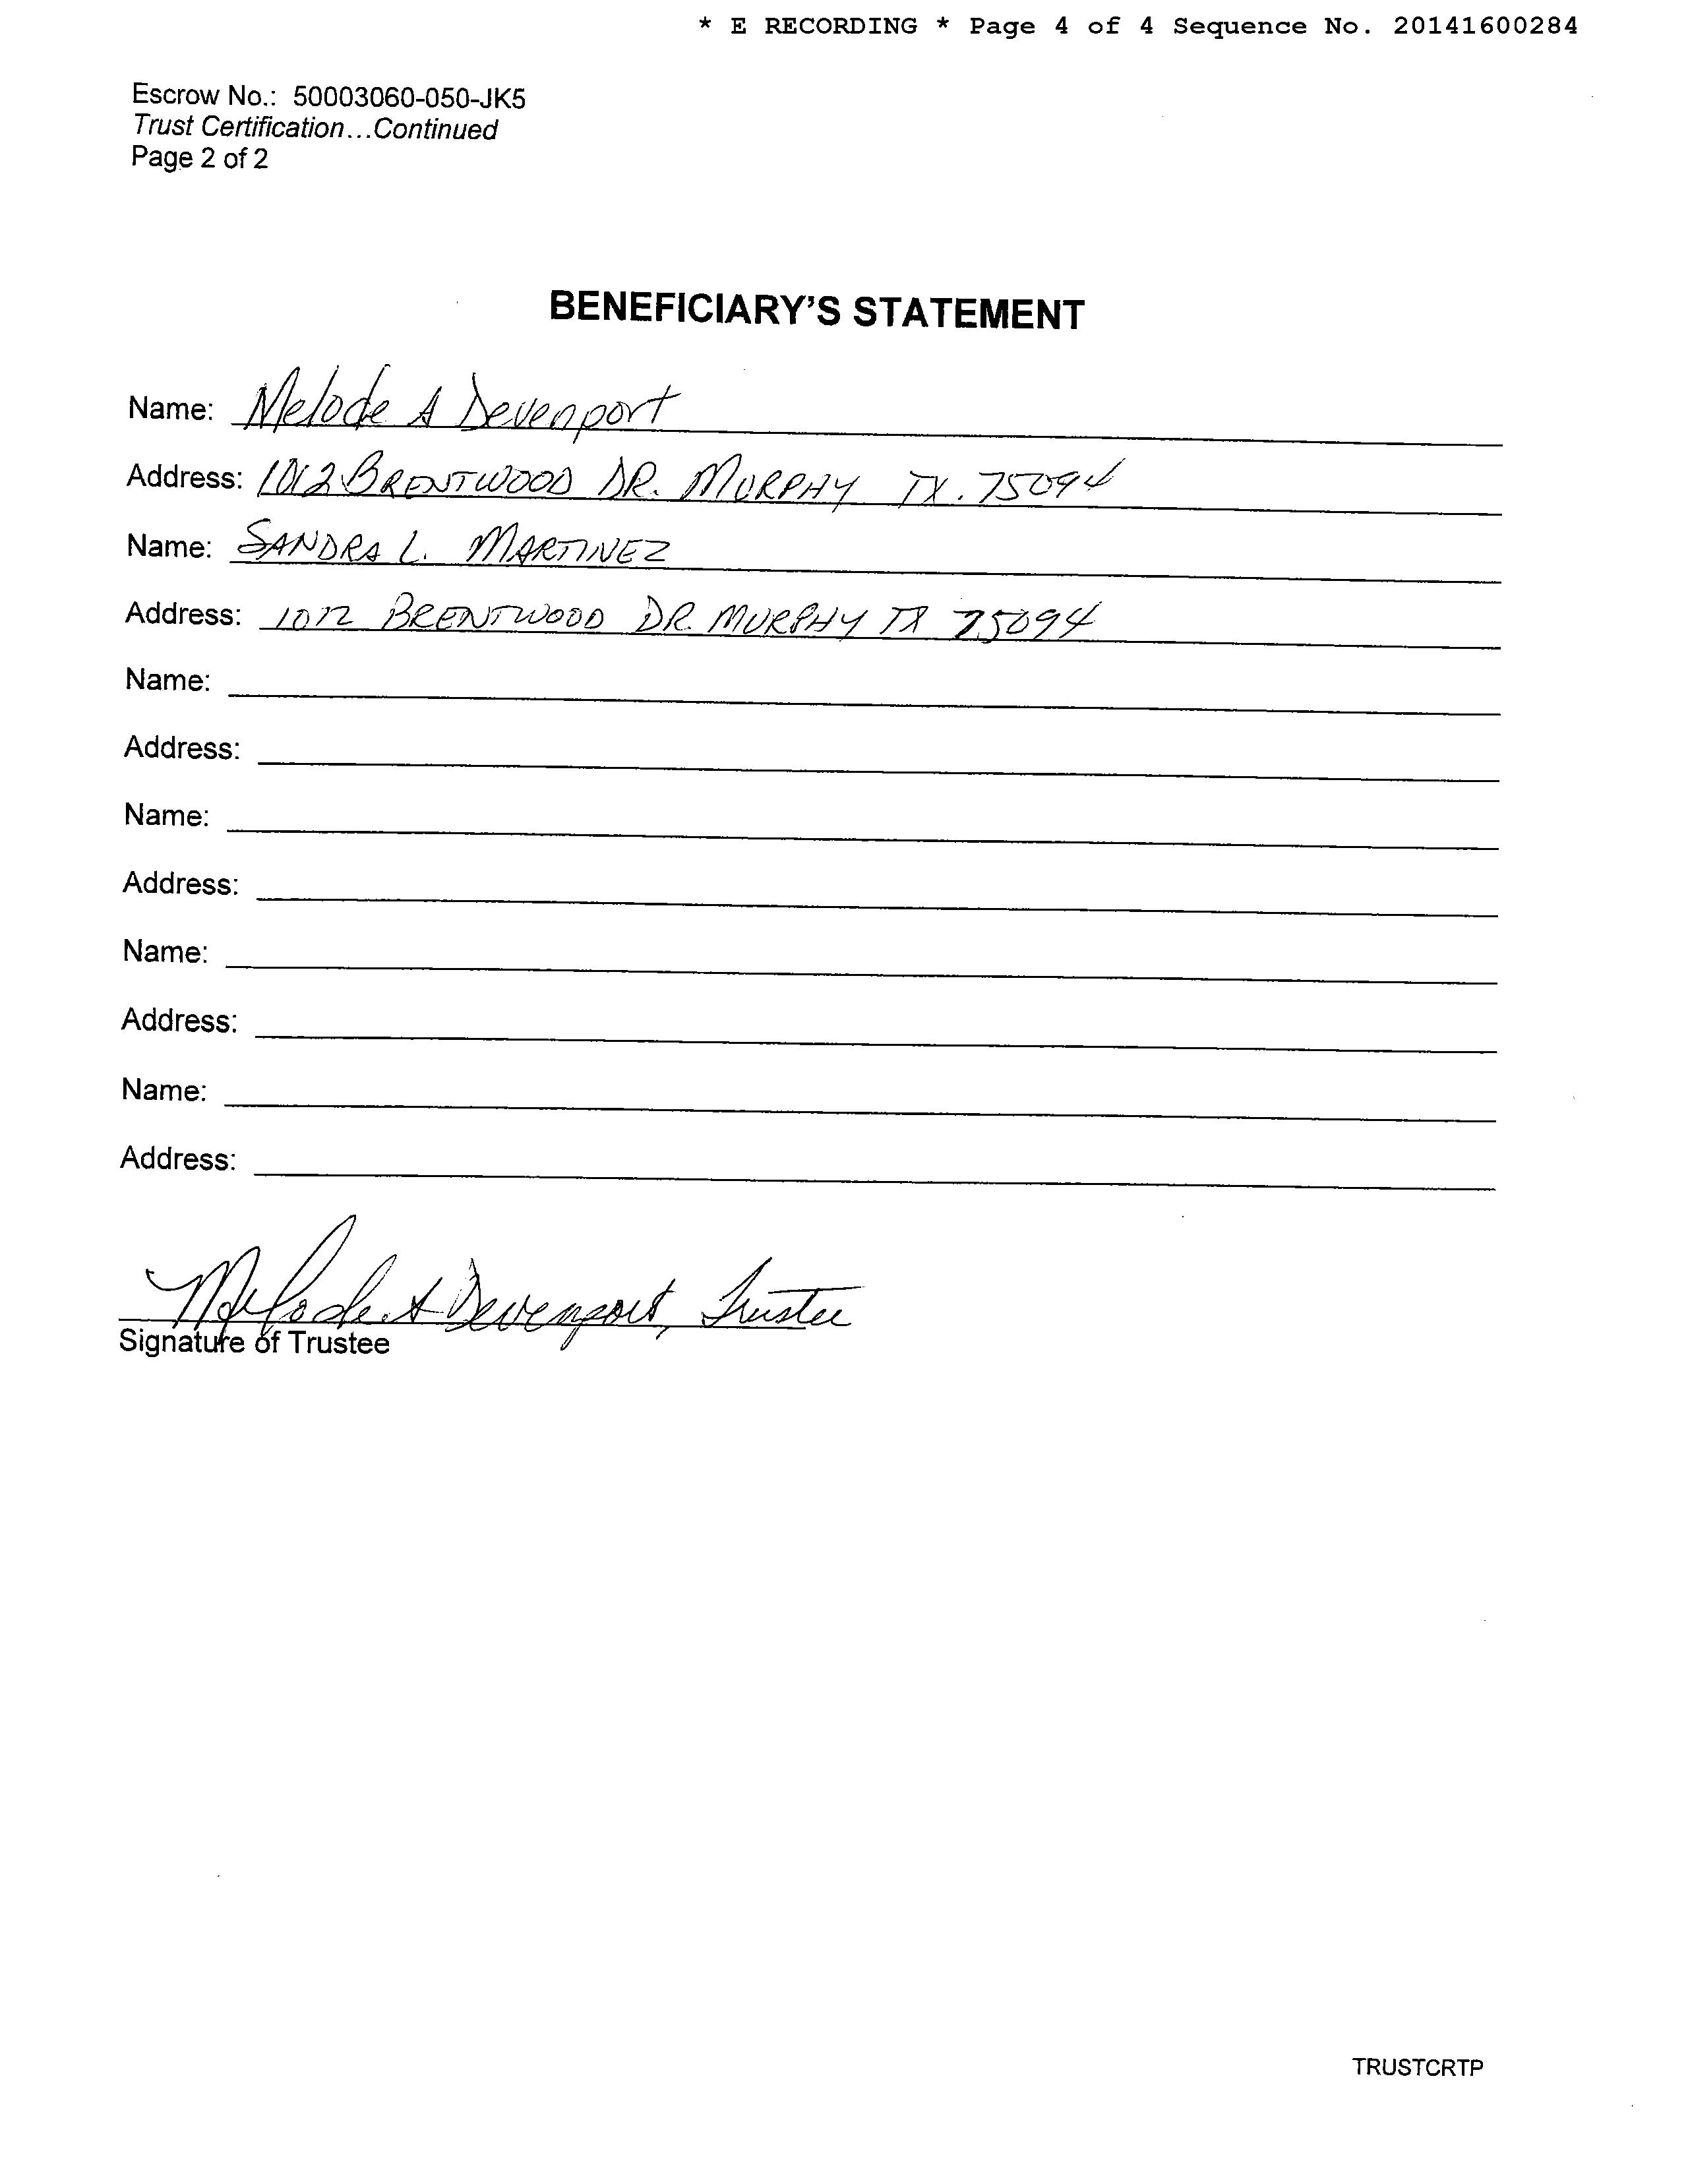 * E RECORDING * Page 4 of 4 Sequence No. 20141600284
Escrow No.: 50003060-050-JK5
Trust Certification...Continued
Page 2 of 2
BENEFICIARY'S STATEMENT
Name: Melode A Devenport
Address: 1012 BRENTWOOD DR. MURPHY TX. 75094
Name: SANDRA L. MARTINEZ
Address: 1012 BRENTWOOD DR MURPHY TX 75094
Name:
Address:
Name:
Address:
Name:
Address:
Name:
Address:
Melode A Devenport, Trustee
Signature of Trustee
TRUSTCRTP